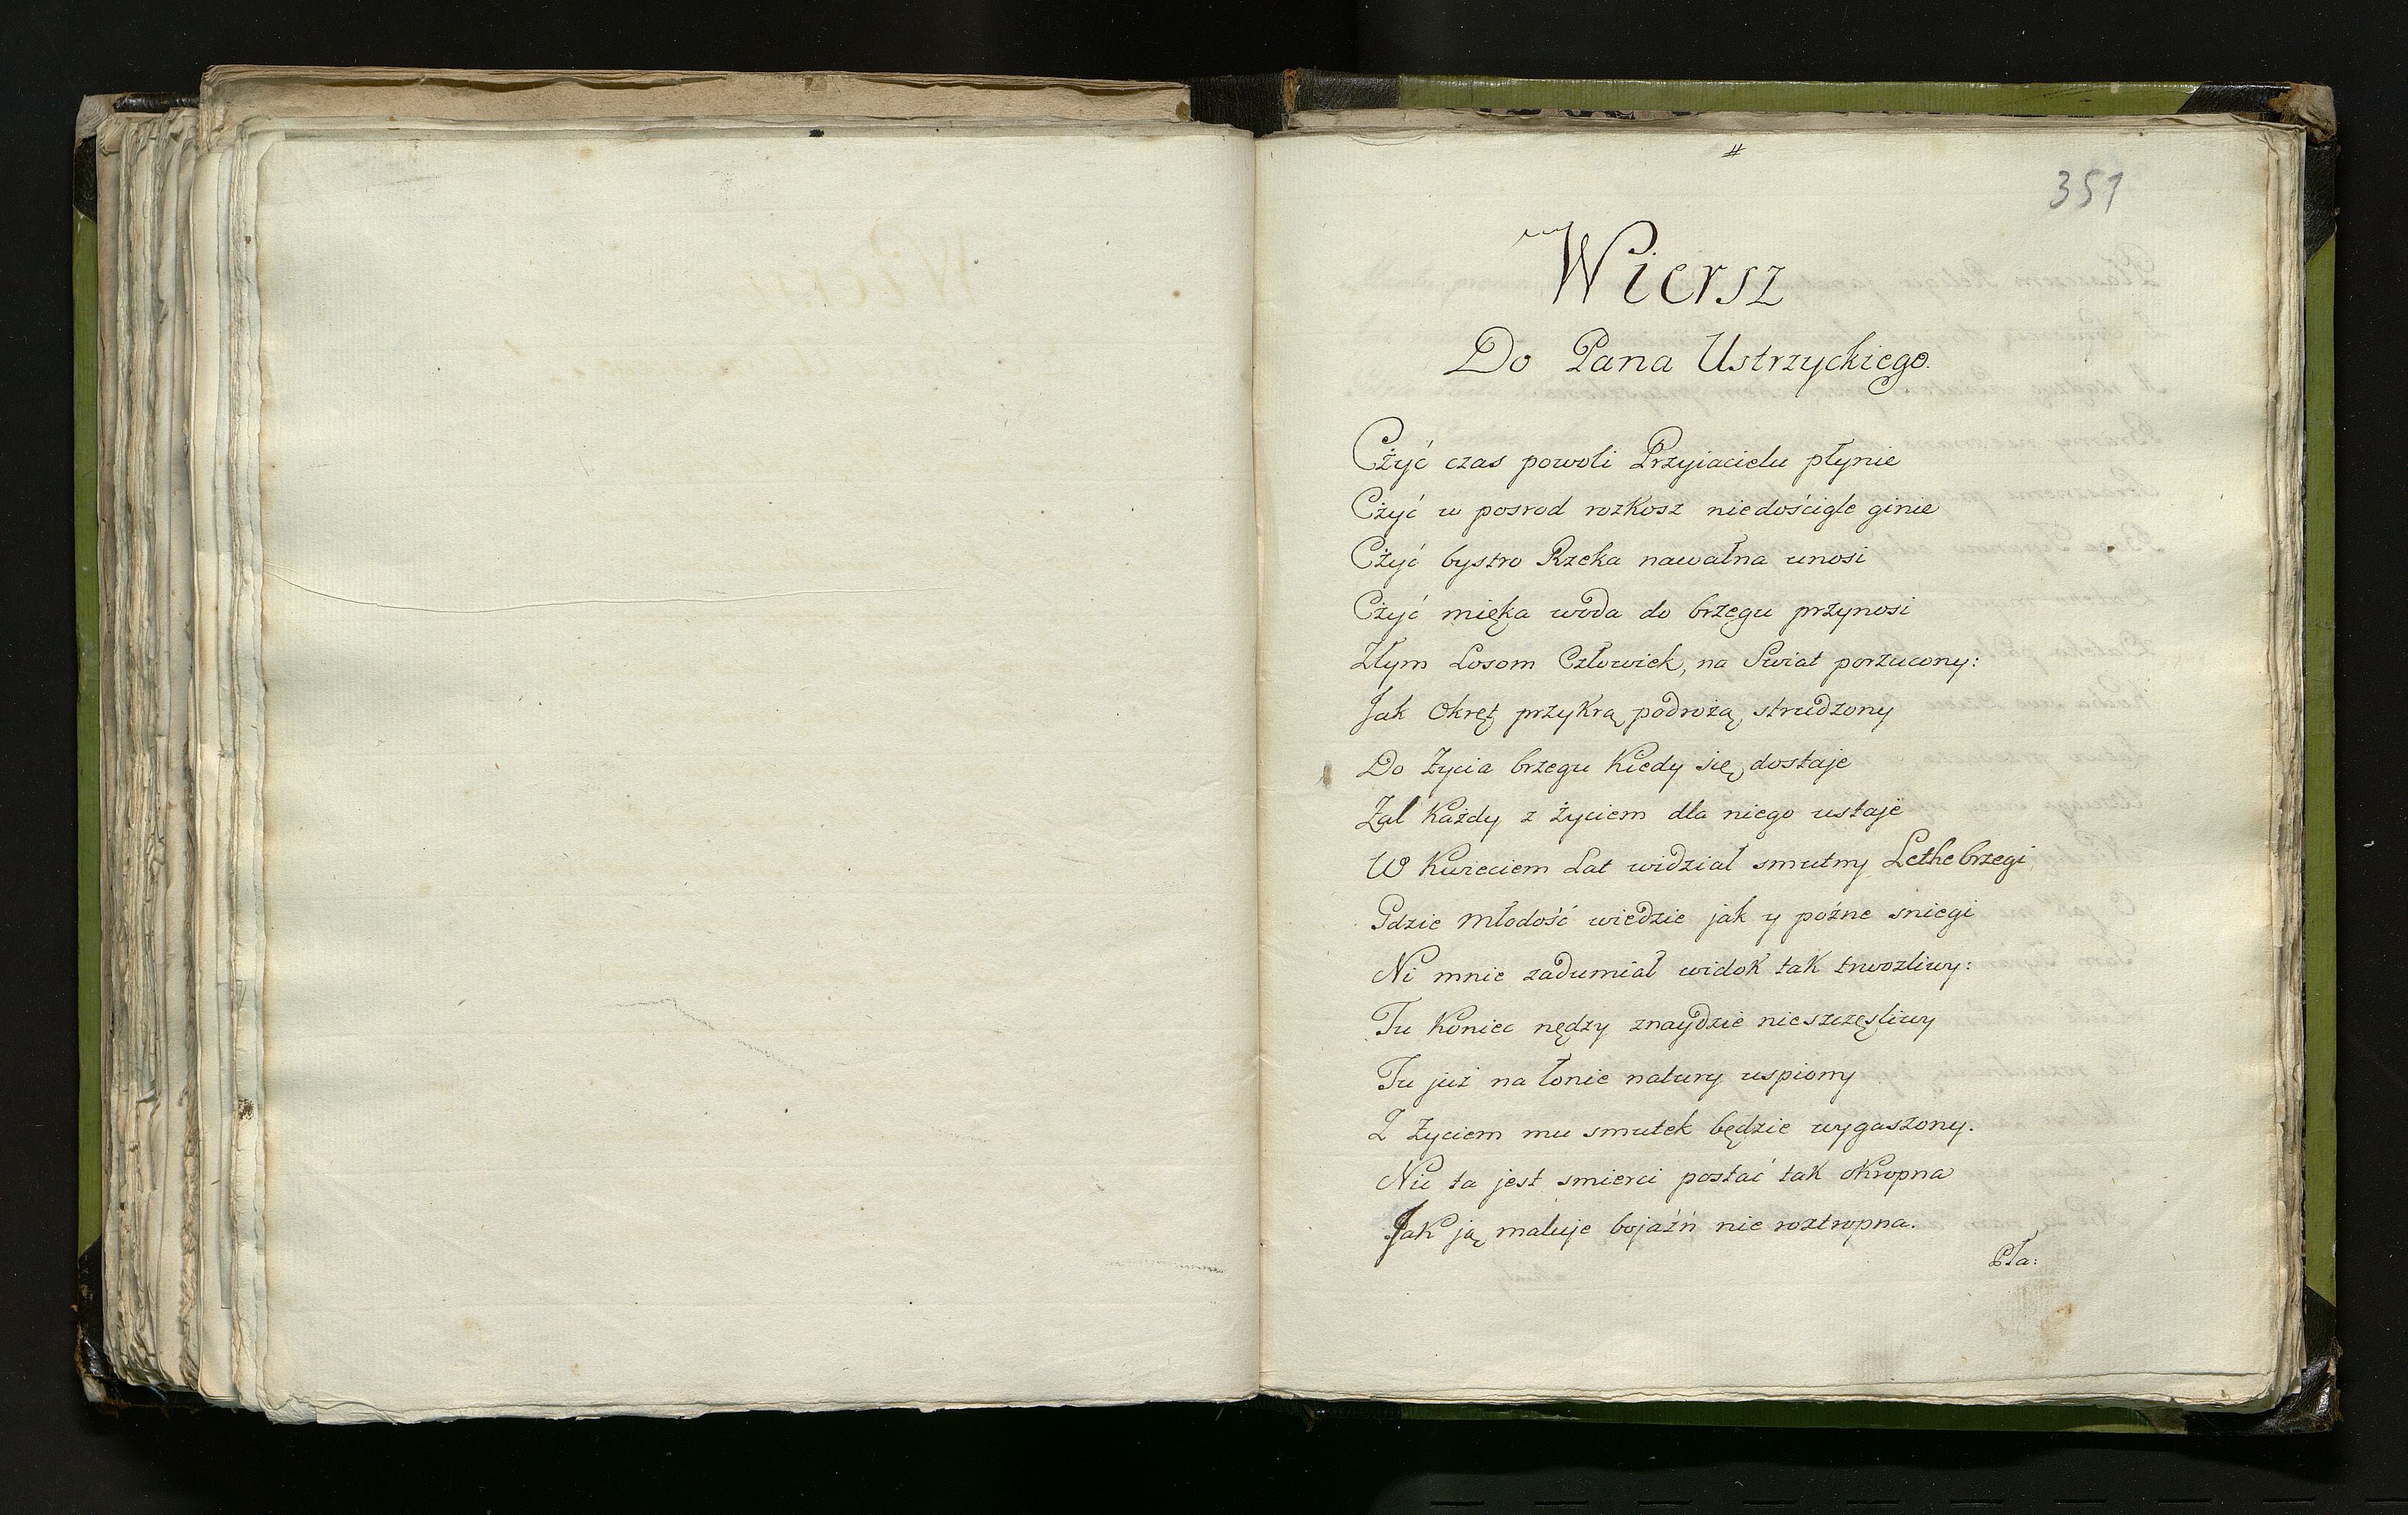 #
351
Wiersz
Do Pana Ustrzyckiego.
Czyć czas powoli Przyiacielu płynie
Czyć w posrod rozkosz niedościgle ginie
Czyć bystro Rzeka nawałna unosi
Czyć mięka woda do brzegu przynosi
Złym Losom Człowiek, na Swiat porzucony:
Jak Okręt przykrą podrożą strudzony
Do Życia brzegu kiedy się dostaje
Żal każdy z życiem dla niego ustaje
W kwieciem Lat widział smutny Lethe brzegi
Gdzie młodość wiedzie jak y poźne sniegi
Ni mnie zadumiał widok tak trwozliwy:
Tu koniec nędzy znaydzie nieszczęsliwy
Tu już na łonie natury uspiony
Z życiem mu smutek będzie wygaszony.
Nie ta jest smierci postać tak okropna
Jak ją maluje bojaźń nie roztropna.
Pła: